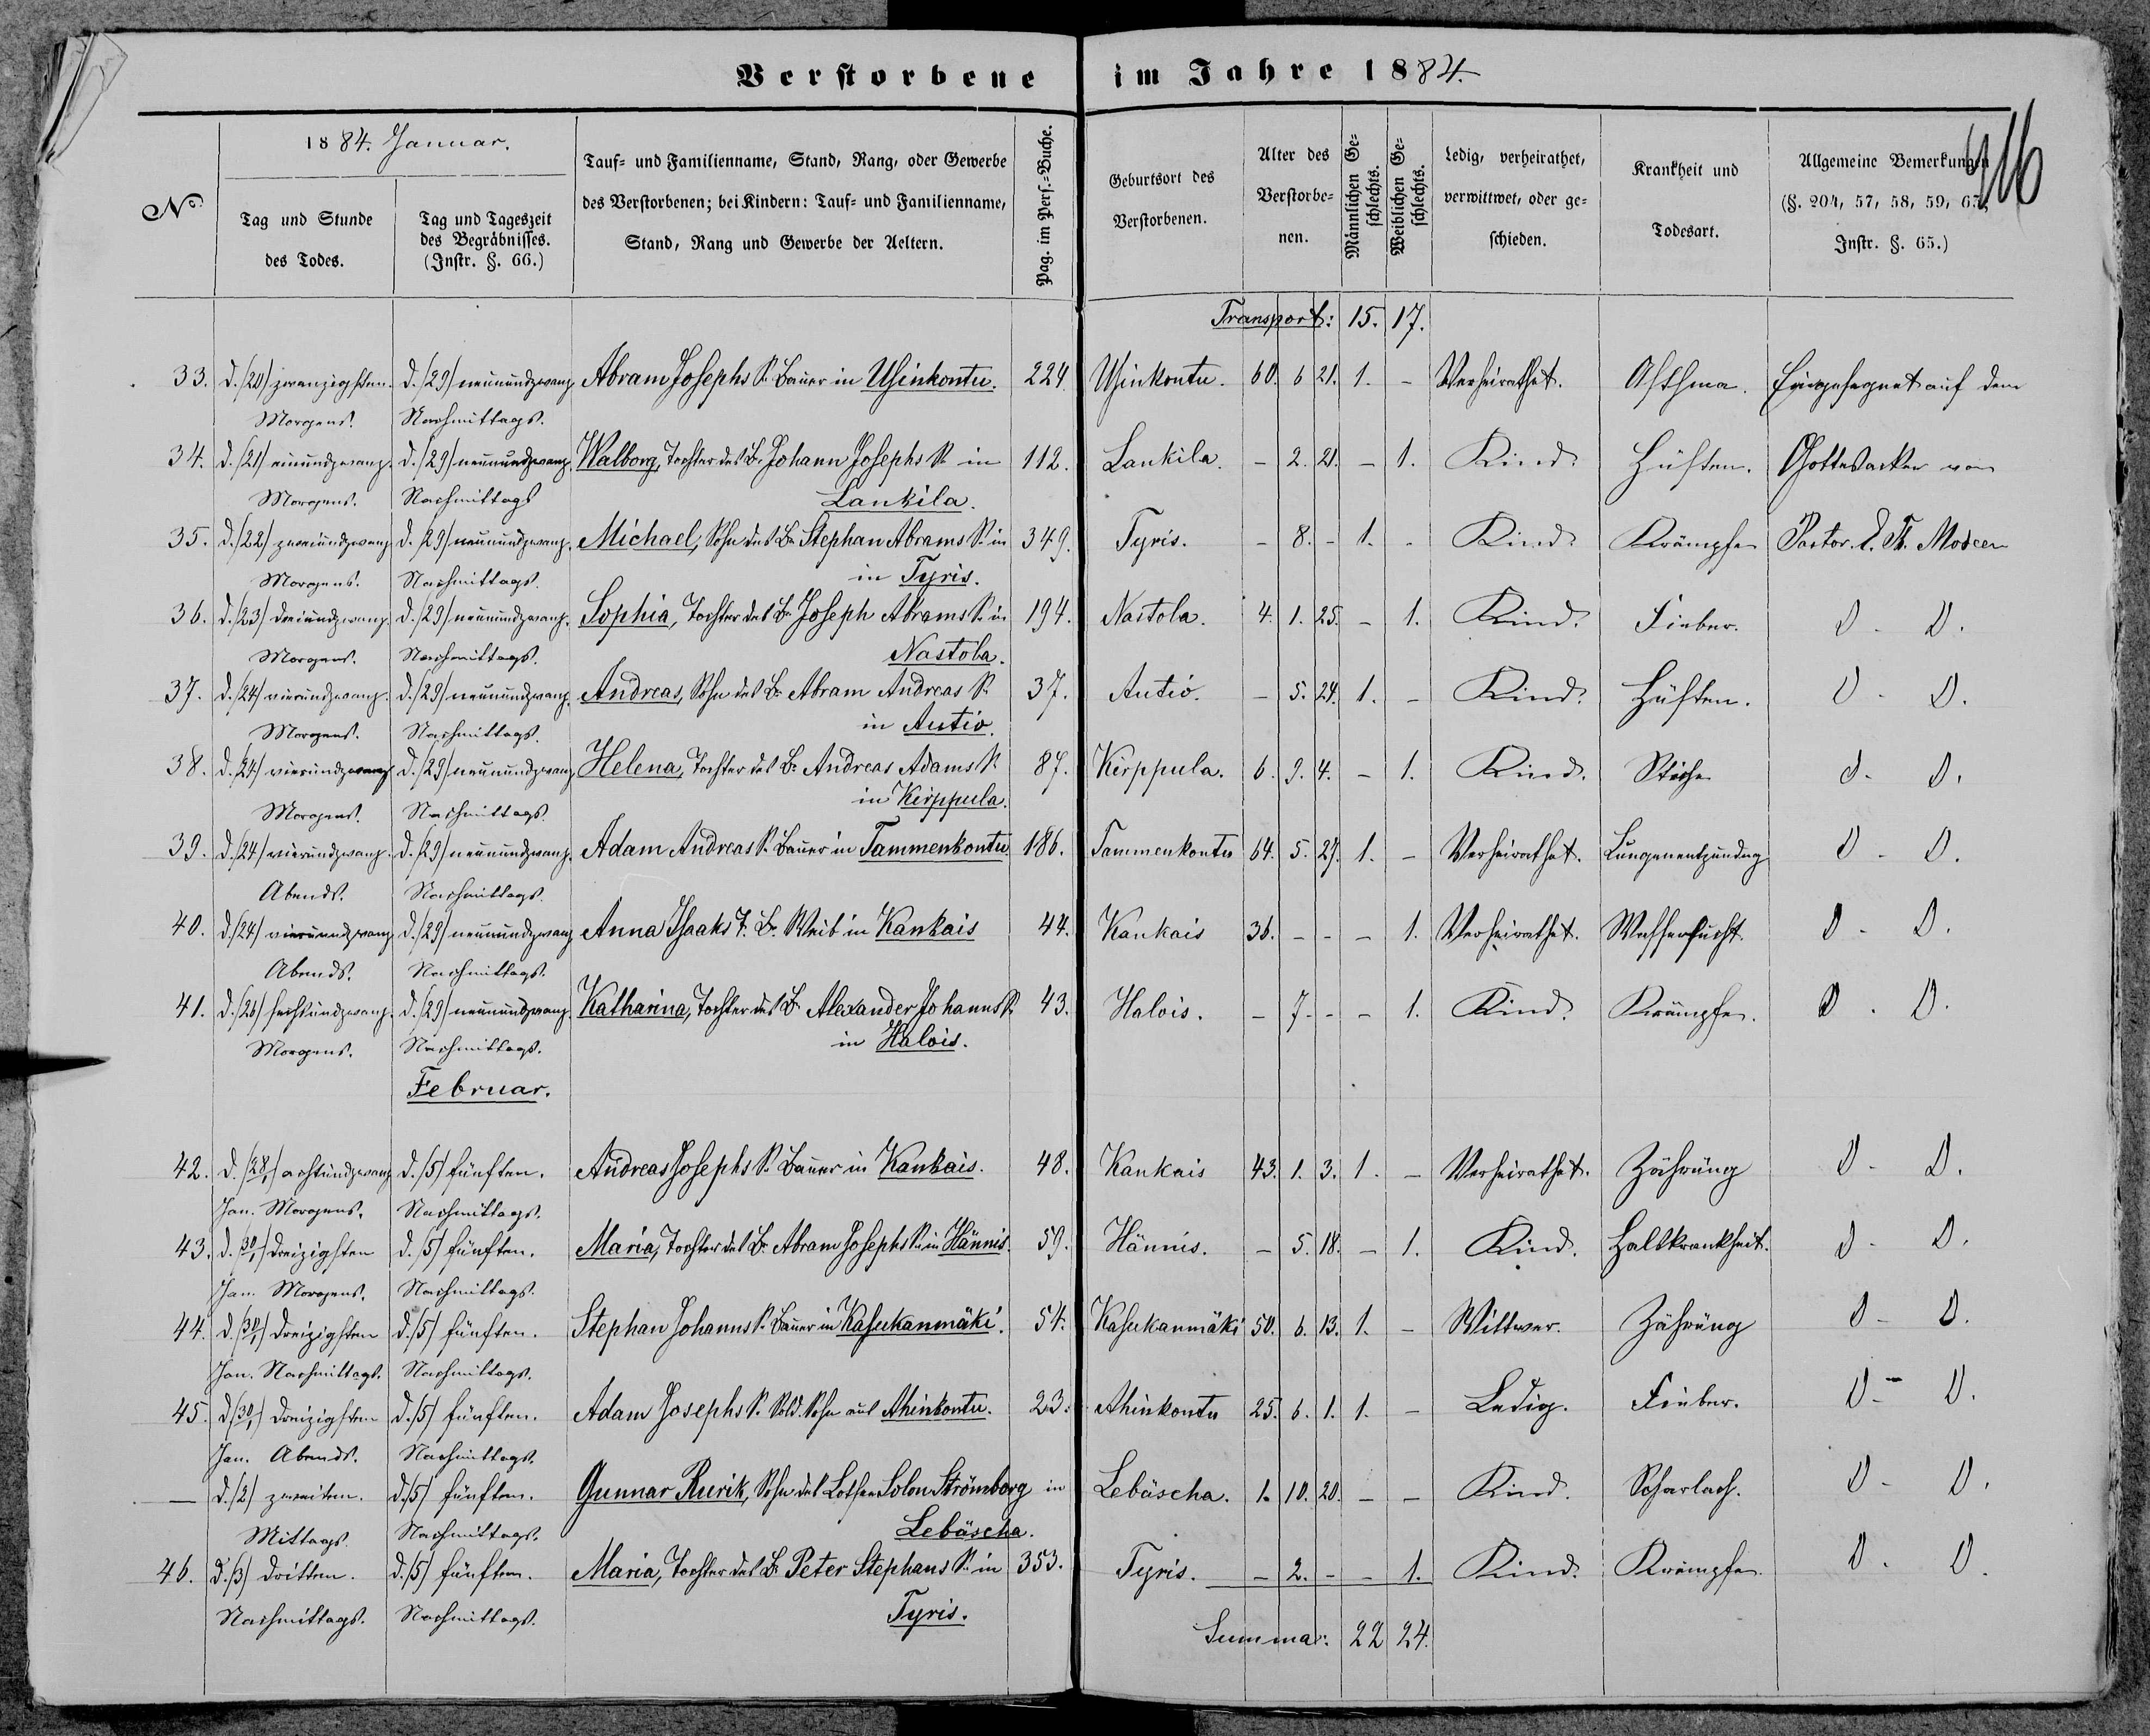 Verstorbene im Jahre 1884.
416
No.
1884. Januar.
Tag und Stunde des Todes.
Tag und Tageszeit des Begräbnisses. (Instr. §. 66.)
Tauf- und Familienname, Stand, Rang, oder Gewerbe
des Verstorbenen; bei Kindern: Tauf- und Familienname,
Stand, Rang und Gewerbe der Aeltern.
Pag. im Pers.-Buche.
Geburtsort des Verstorbenen.
Alter des Verstorbe-nen.
Männlichen Ge-schlechts.
Weiblichen Ge-schlechts.
Ledig, verheirathet, verwittwet, oder ge-schieden.
Krankheit und Todesart.
Allgemeine Bemerkungen
(§. 204, 57, 58, 59, 67,
Instr. §. 65.)
Transport: 15. 17.
33. d. /20/ zwanzigsten. d. /29/ neunundzwanz. Abram Josephs S. Bauer in Usinkontu. 224. Usinkontu. 60. 6 21. 1. - Verheirathet. Asthma. Eingesegnet auf dem
Morgens. Nachmittags.
34. d. /21/ einundzwanz. d. /29/ neunundzwanz. Walborg, Tochter des B. Johann Josephs S. in 112. Lankila. - 2. 21. - 1. Kind. Husten. Gottesacker von
Morgens. Nachmittags Lankila.
35. d. /22/ zweiundzwanz d. /29/ neunundzwanz. Michael, Sohn des B. Stephan Abrams S. in 349. Tyris. - 8. - 1. - Kind. Krämpfe Pastor.
Morgens. Nachmittags. in Tyris.
36. d. /23/ dreiundzwanz. d. /29/ neunundzwanz. Sophia, Tochter des B. Joseph Abrams S. in 194. Nastola. 4. 1. 25. - 1. Kind. Fieber. D - D.
Morgens. Nachmittags. Nastola.
37. d. /24/ vierundzwanz. d. /29/ neunundzwanz. Andreas, Sohn des B. Abram Andreas S. 37. Autio. - 5. 24. 1. - Kind. Husten. D - D.
Morgens. Nachmittags. in Autio.
38. d. /24/ vierundzwanz d. /29/ neunundzwanz Helena, Tochter des B. Andreas Adams S. 87. Kirppula. 6. 9. 4. - 1. Kind. Stiche D - D.
Morgens. Nachmittags. in Kirppula.
39. d. /24/ vierundzwanz. d. /29/ neunundzwanz. Adam Andreas S. Bauer in Tammenkontu 186. Tammenkontu 64. 5. 27. 1. - Verheirathet. Lungenentzündng D - D.
Abends. Nachmittags.
40. d. /24/ vierundzwanz d. /29/ neunundzwanz Anna Isaaks T. B. Weib in Kankais 44. Kankais 36. - - - 1. Verheirathet. Wassersucht. D - D.
Abends. Nachmittags.
41. d. /26/ sechsundzwanz. d. /29/ neunundzwanz. Katharina, Tochter des B. Alexander Johanns S. 43. Halois. - 7 - - 1. Kind. Krämpfe. D - D.
Morgens. Nachmittags. in Halois.
Februar.
42. d. /28/ achtundzwanz d. /5/ fünften. Andreas Josephs S. Bauer in Kankais. 48. Kankais 43. 1. 3. 1. - Verheirathet. Zährung D - D.
Jan. Morgens. Nachmittags.
43. d. /30/ dreizigsten d. /5/ fünften. Maria, Tochter des B. Abram Josephs S. in Hännis. 59. Hännis. - 5. 18. - 1. Kind. Halskrankheit. D - D.
Jan. Morgens. Nachmittags.
44. d. /30/ dreizigsten d. /5/ fünften. Stephan Johanns S. Bauer in Kasukanmäki. 54. Kasukanmäki 50. 6. 13. 1. - Wittwer. Zährung D - D.
Jan. Nachmittags. Nachmittags.
45. d /30/ dreizigsten d. /5/ fünften. Adam Josephs S. Sold. Sohn aus Ahinkontu. 23. Ahinkontu 25. 6. 1. 1. - Ledig. Fieber. D - D.
Jan. Abends. Nachmittags.
- d. /2/ zweiten. d. /5/ fünften. Gunnar Rurik, Sohn des Lothsen Solon Strömborg in Lebäscha. 1. 10. 20. - - Kind. Scharlach. D - D.
Mittags. Nachmittags. Lebäscha.
46. d. /3/ dritten. d. /5/ fünften. Maria, Tochter des B. Peter Stephans S. in 353. Tyris. - 2. - - 1. Kind. Krämpfe. D - D.
Nachmittags. Nachmittags. Tyris.
Summa: 22 24.